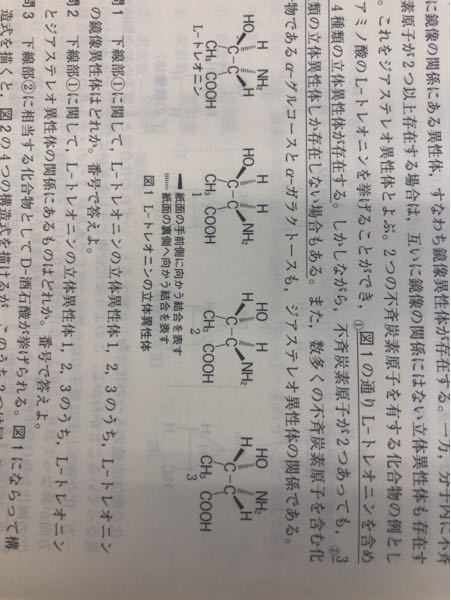 に鏡像の関係にある異性体,すなわち鏡像異性体が存在する。一方,分子内に不斉
素原子が2つ以上存在する場合は,互いに鏡像の関係にはない立体異性体も存在す
。これをジアステレオ異性体とよぶ。2つの不斉炭素原子を有する化合物の例とし
アミノ酸のL-トレオニンを挙げることができ,①図1の通りL-トレオニンを含め
4種類の立体異性体が存在する。しかしながら,不斉炭素原子が2つあっても,②3
類の立体異性体しか存在しない場合もある。また,数多くの不斉炭素原子を含む化
物であるα-グルコースとα-ガラクトースも,ジアステレオ異性体の関係である。
HO H NH₂
C-C
H
CH₃ COOH
L-トレオニン
HO H H
C-C
NH₂
CH₃ COOH
1
HO H
C-C
H NH₂
CH₃ COOH
2
HO NH₂
C-C
H H
CH₃ COOH
3
紙面の手前側に向かう結合を表す
紙面の裏側へ向かう結合を表す
図1 L-トレオニンの立体異性体
問1 下線部①に関して,L-トレオニンの立体異性体1,2,3のうち,L-トレオニン
の鏡像異性体はどれか。番号で答えよ。
問2 下線部①に関して,L-トレオニンの立体異性体1,2,3のうち,L-トレオニン
とジアステレオ異性体の関係にあるものはどれか。番号で答えよ。
問3 下線部②に相当する化合物としてD-酒石酸が挙げられる。図1にならって構
造式を描くと,図2の4つの構造式を描けるが,このうち2つは